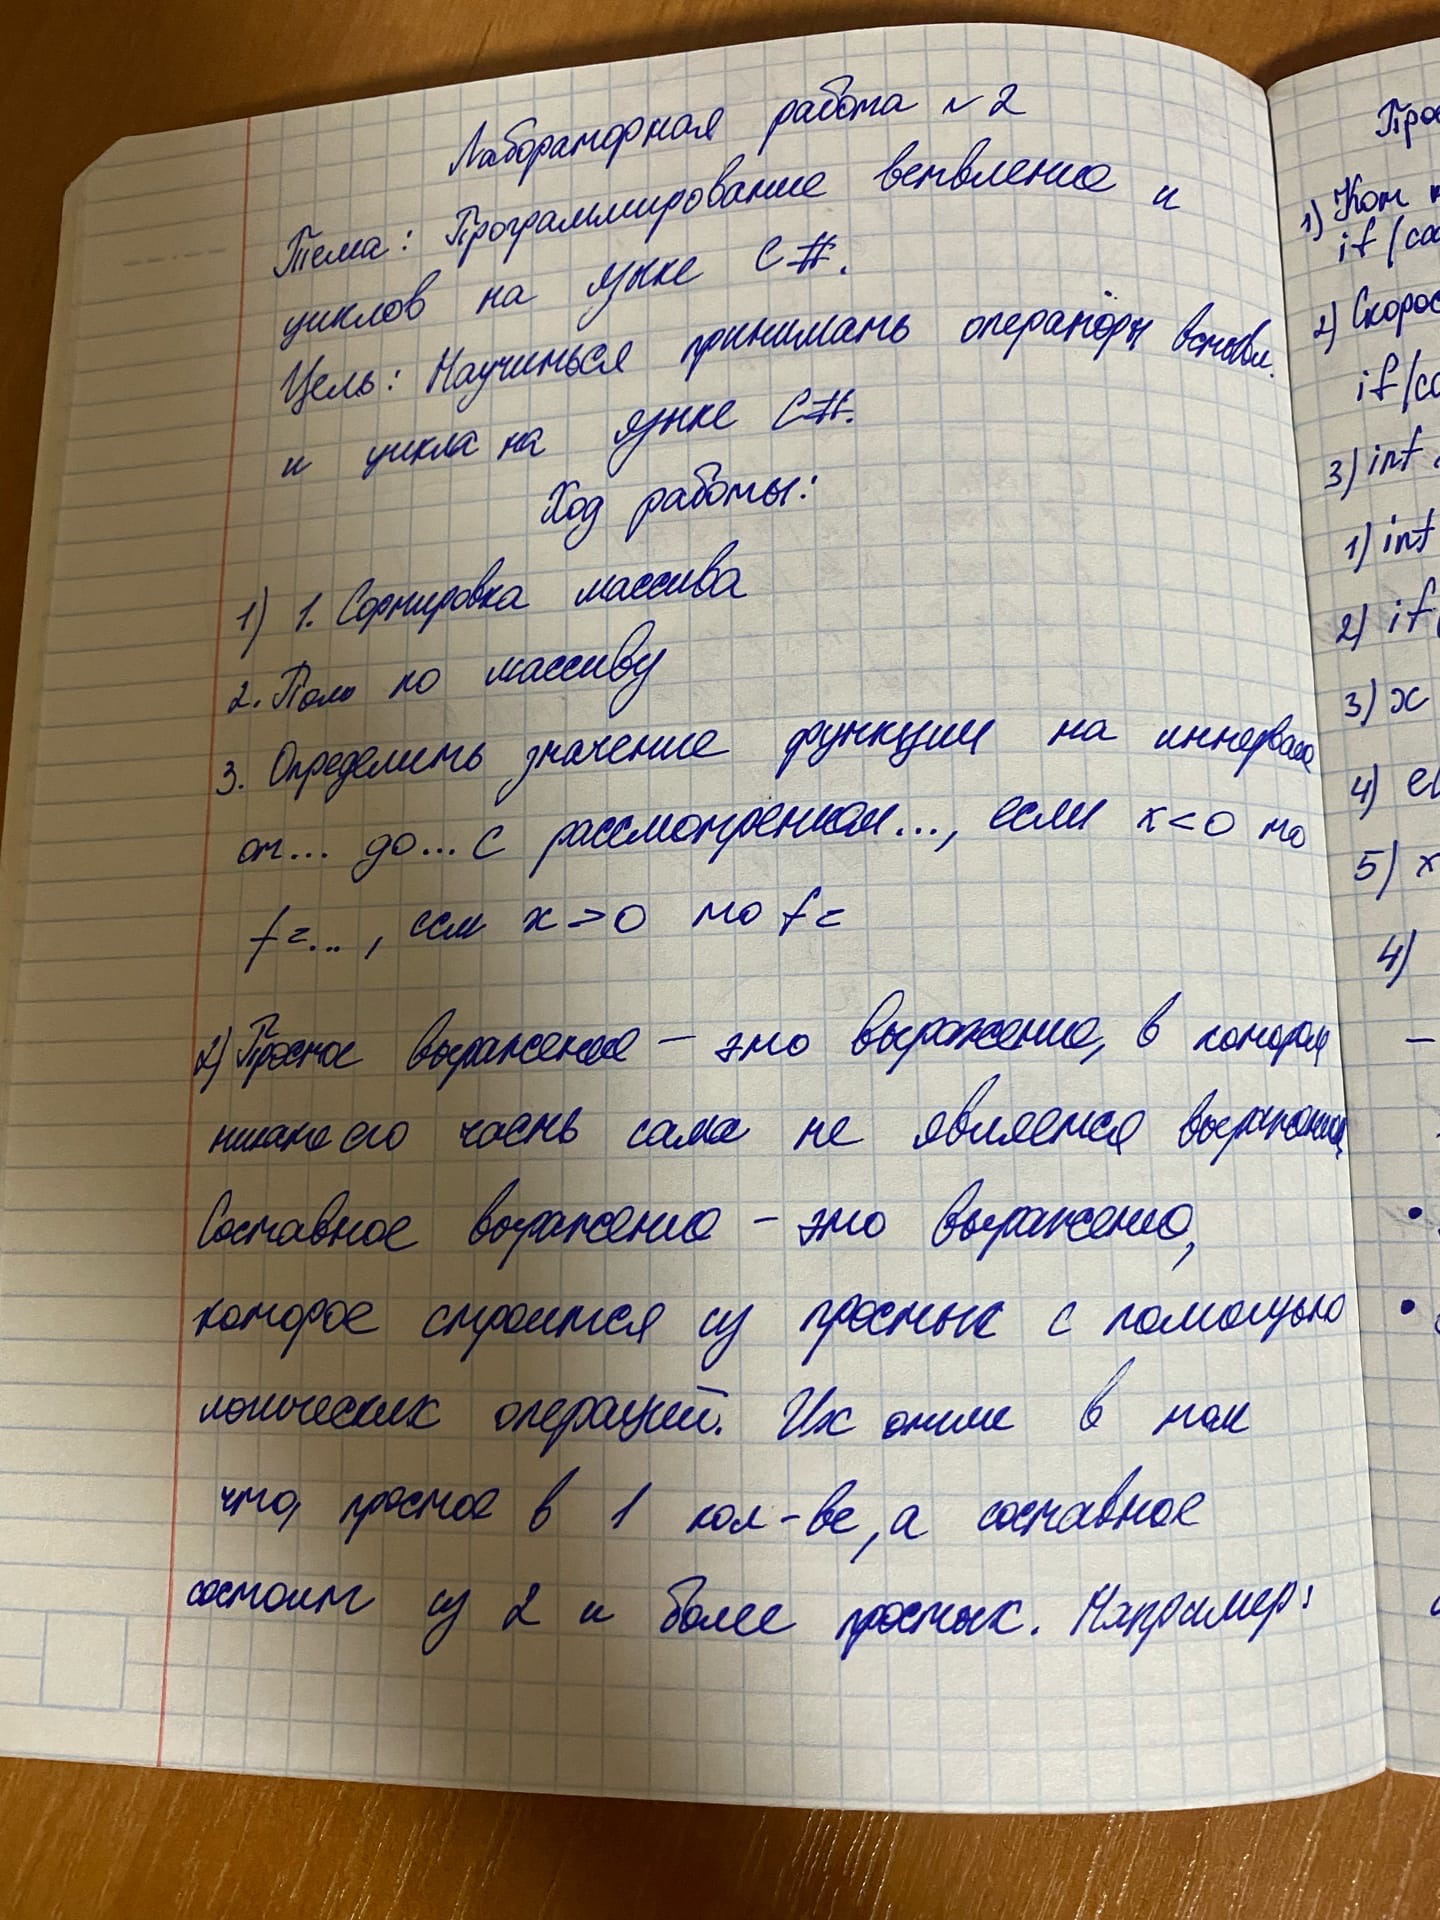 Лабораторная работа № 2
Тема: Программирование ветвление и
циклов на языке C#.
Цель: Научиться принимать операторы ветвл.
и цикла на языке C#.
Ход работы:
1) 1. Сортировка массива
2. по массиву
3. Определить значение функции на интервале
от... до... с рассмотрением..., если x<0 то
f=..., если x>0 то f=
2) Простое выражение – это выражение, в котором
никакая его часть сама не является выражением
Составное выражение – это выражение,
которое строится из простых с помощью
логических операций. Их отличие в том
что, простое в 1 кол-ве, а составное
состоит из 2 и более простых. Например:
1)
if (
2) Скорос
if (
3) int
1) int
2) if
3) x
4) el
5) x
4)